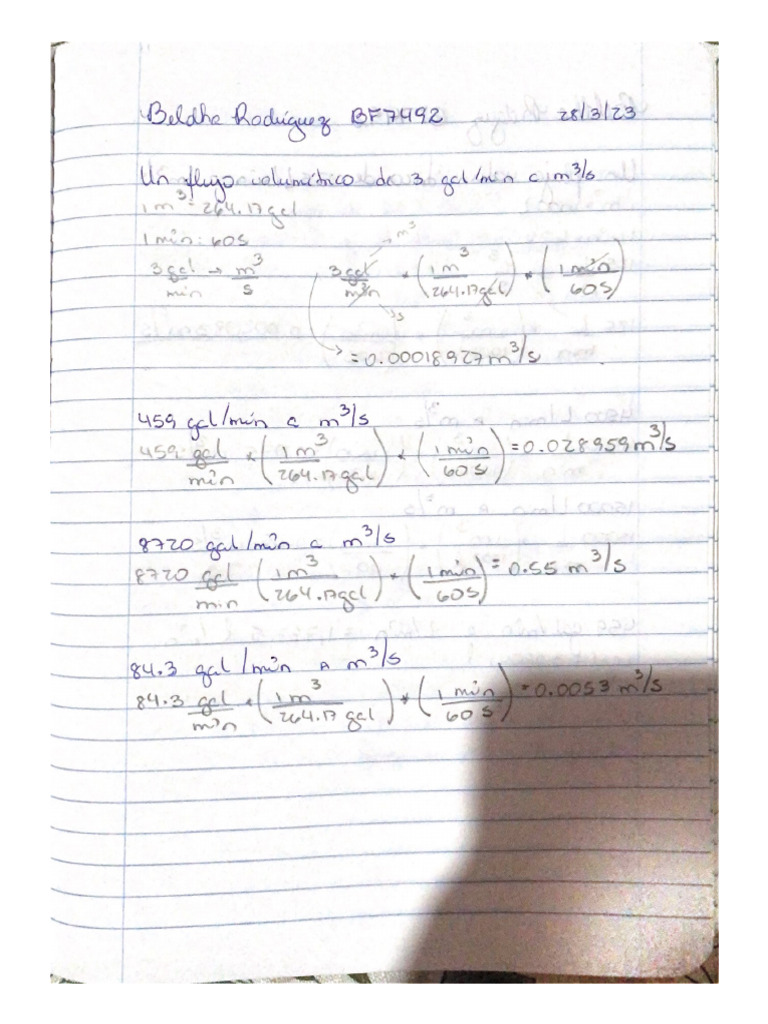 Beldha Rodríguez BF7492 28/3/23
Un flujo volumétrico de 3 gal/min a m³/s
1 m³ = 264.17 gal
1 min : 60 s
3 gal/min → m³/s 3 gal/min → m³ → s * (1 m³/264.17 gal) * (1 min/60 s)
= 0.00018927 m³/s
459 gal/min a m³/s
459 gal/min * (1 m³/264.17 gal) * (1 min/60 s) = 0.028959 m³/s
8720 gal/min a m³/s
8720 gal/min (1 m³/264.17 gal) * (1 min/60 s) = 0.55 m³/s
84.3 gal/min A m³/s
84.3 gal/min * (1 m³/264.17 gal) * (1 min/60 s) = 0.0053 m³/s